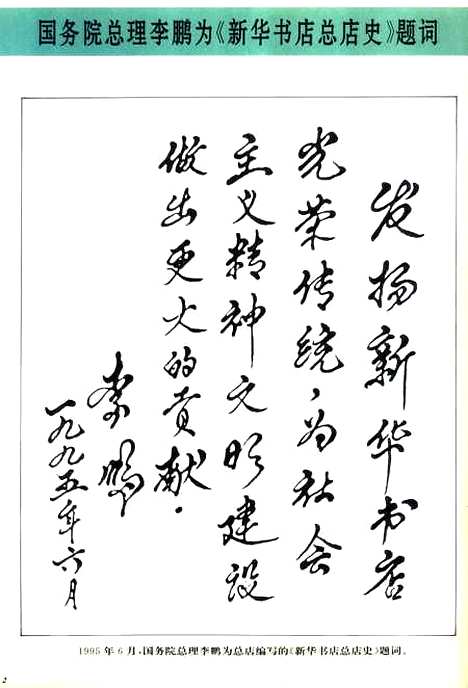 国务院总理李鹏为《新华书店总店史》题词
发扬新华书店
光荣传统，为社会
主义精神文明建设
做出更大的贡献．
李鹏
一九九五年六月
1995年6月，国务院总理李鹏为总店编写的《新华书店总店史》题词。
2